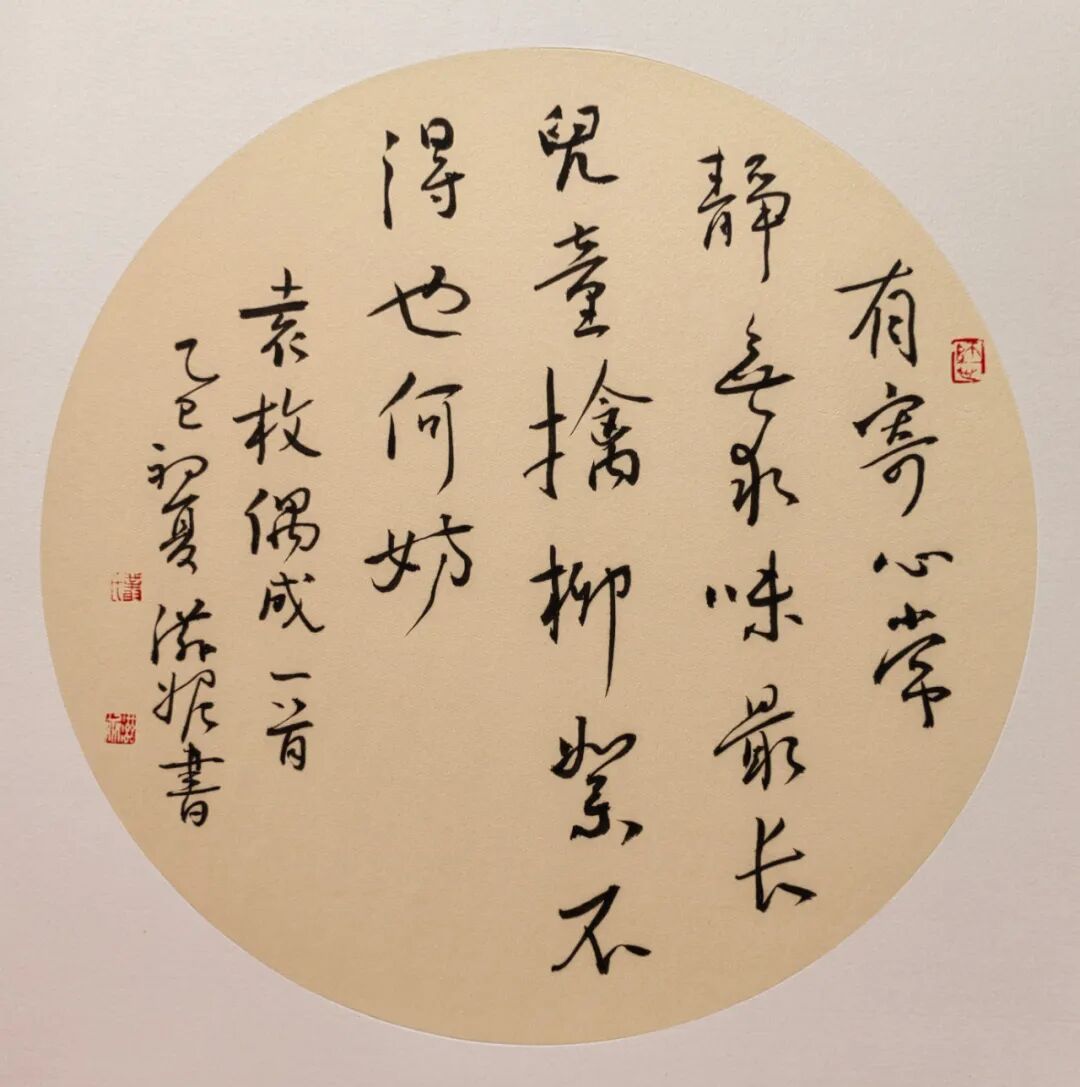 有寄心常
靜無求味最长
兒童擒柳絮不
得也何妨
袁枚偶成一首
乙巳初夏書